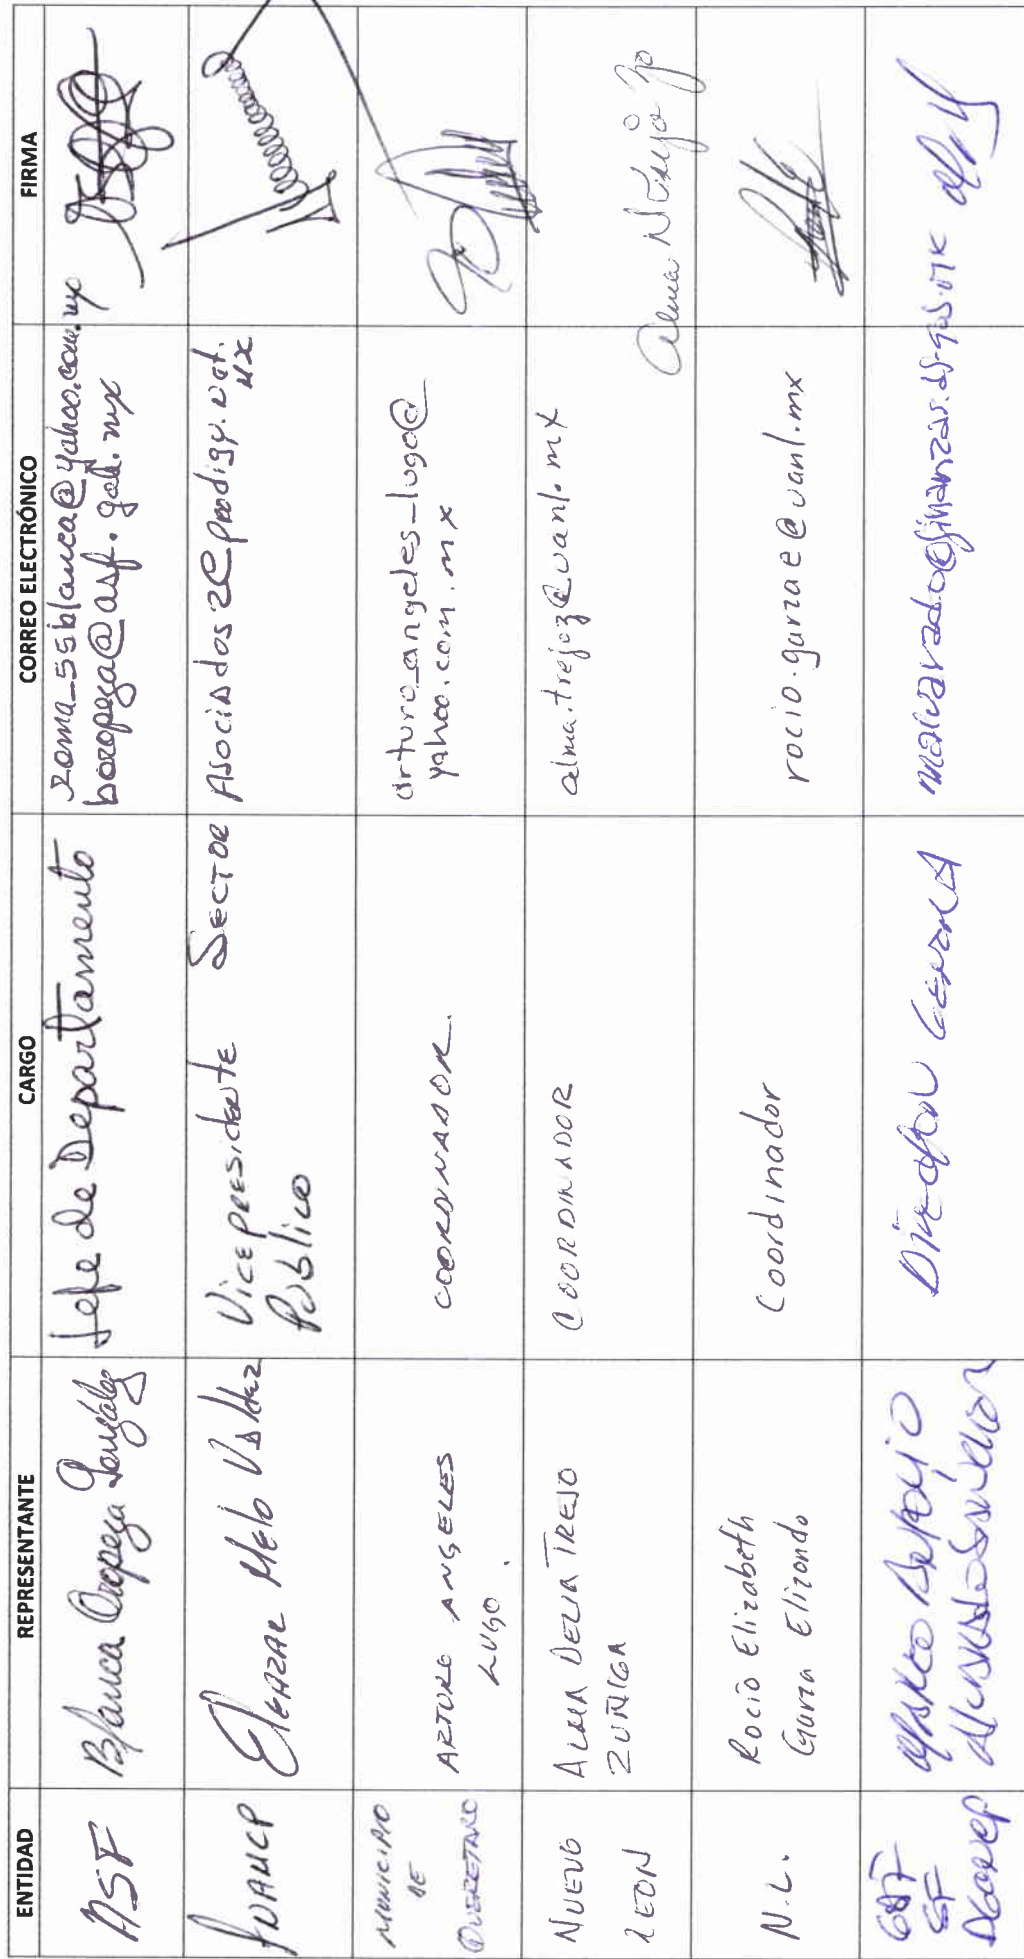 ENTIDAD REPRESENTANTE CARGO CORREO ELECTRÓNICO FIRMA
ASF
Blanca Oropeza González
Jefe de Departamento
roma_55blanca@yahoo.com.mx
boropeza@asf.gob.mx
Eleazar Melo Valdez
Vicepresidente Sector
Público
Asociados2@prodigy.net.
mx
MUNICIPIO
DE
QUERETARO
ARTURO ANGELES
LUGO.
COORDINADOR.
arturo_angeles_lugo@
yahoo.com.mx
NUEVO
LEON
ALMA DELIA TREJO
ZUÑIGA
COORDINADOR
alma.trejoz@uanl.mx
Alma D Trejo Z
N.L.
Rocío Elizabeth
Garza Elizondo
Coordinador
rocio.garzae@uanl.mx
GDF
SF
Director General
malvarado@finanzas.df.gob.mx